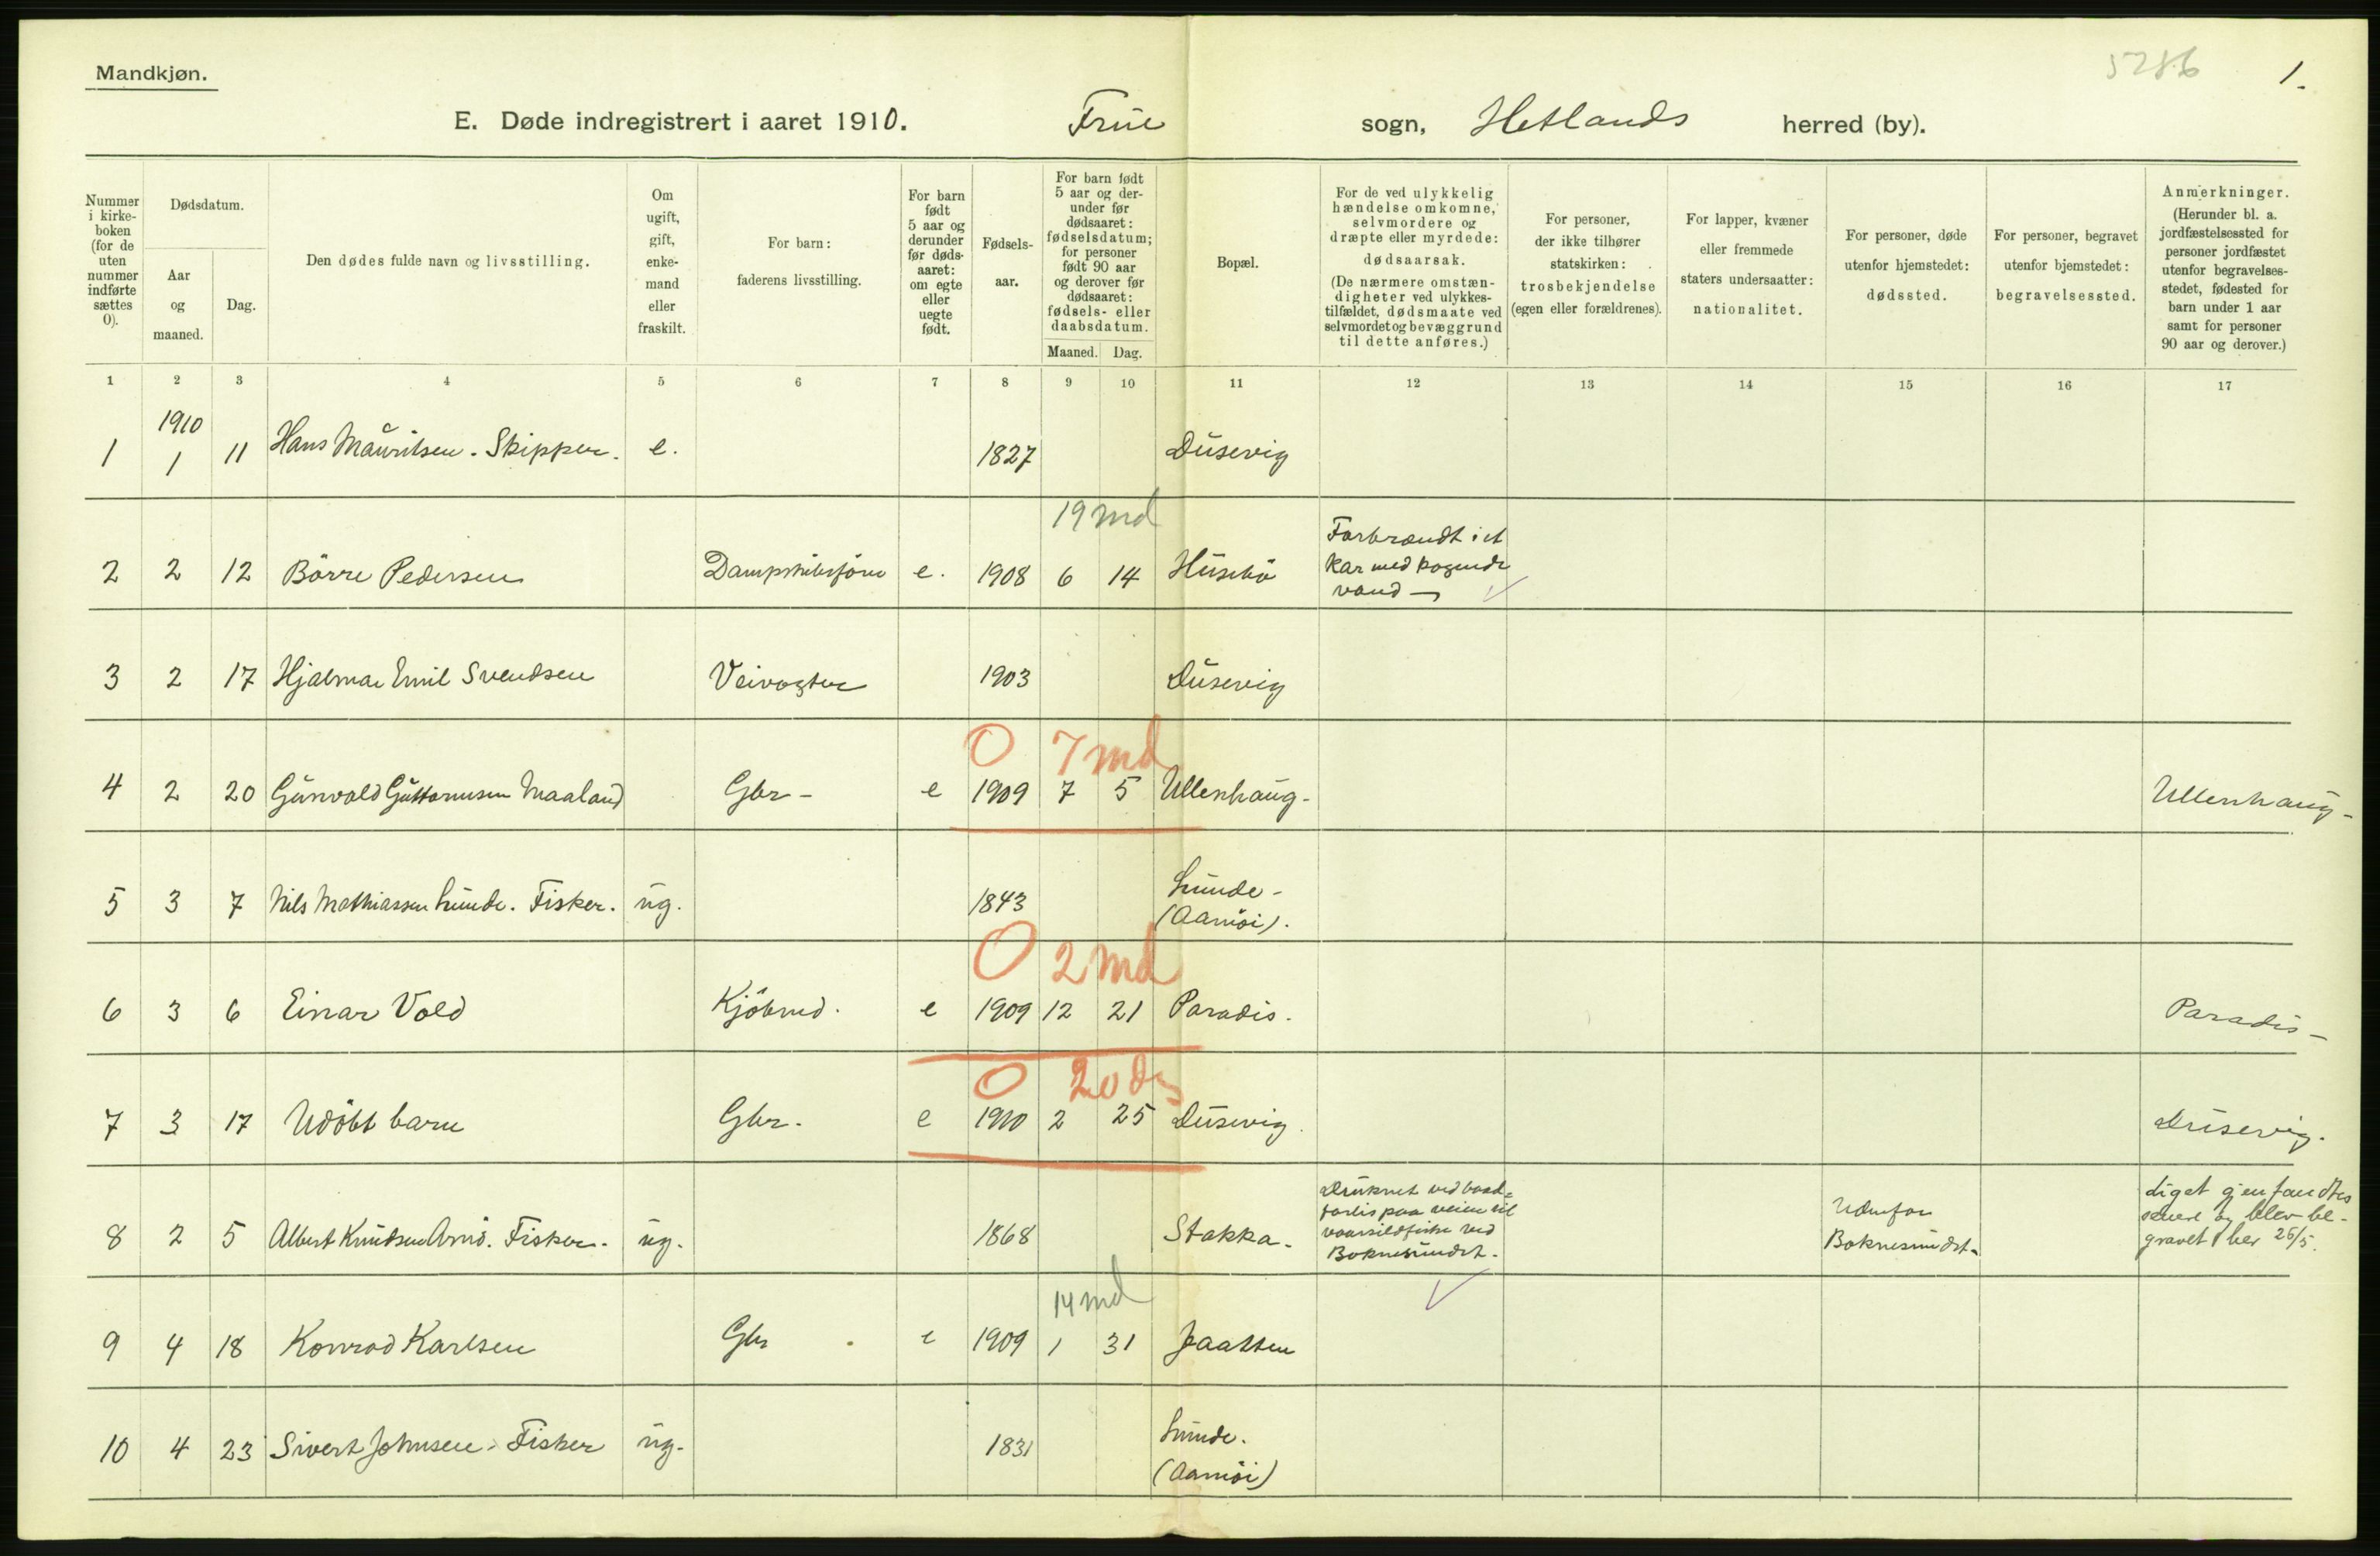 Mandkjøn.
5286
1.
E. Døde indregistrert i aaret 1910. Frue sogn, Hetlands herred (by).
Nummer i kirke-boken (for de uten nummer indførte sættes 0).
Dødsdatum.
Aar og maaned.
Dag.
Den dødes fulde navn og livsstilling.
Om ugift, gift, enke-mand eller fraskilt.
For barn: faderens livsstilling.
For barn født 5 aar og derunder før døds-aaret: om egte eller uegte født.
Fødsels-aar.
For barn født 5 aar og der-under før dødsaaret: fødselsdatum; for personer født 90 aar og derover før dødsaaret: fødsels- eller daabsdatum.
Maaned. Dag.
Bopæl.
For de ved ulykkelig hændelse omkomne, selvmordere og dræpte eller myrdede: dødsaarsak.
(De nærmere omstæn-digheter ved ulykkes-tilfældet, dødsmaate ved selvmordet og bevæggrund til dette anføres.)
For personer, der ikke tilhører statskirken: trosbekjendelse (egen eller forældrenes).
For lapper, kvæner eller fremmede staters undersaatter: nationalitet.
For personer, døde utenfor hjemstedet: dødssted.
For personer, begravet utenfor bjemstedet: begravelsessted.
Anmerkninger.
(Herunder bl. a. jordfæstelsessted for personer jordfæstet utenfor begravelses-stedet, fødested for barn under 1 aar samt for personer 90 aar og derover.)
1 2 3 4 5 6 7 8 9 10 11 12 13 14 15 16 17
1910
1 1 11 Hans Mauritsen. Skipper. e. 1827 Dusevig
19 md
2 2 12 Börre Pedersen Dampskibsförer e. 1908 6 14 Husebö
Forbrændt i et
kar med kogende
vand
3 2 17 Hjalmar Emil Svendsen Veivogter 1903 Dusevig
0 7 md
4 2 20 Gunvald Guttormsen Maaland Gbr - e 1909 7 5 Ullenhaug- Ullenhaug-
5 3 7 Nils Mathiassen Lunde. Fisker. ug. 1843 Lunde-
(Aamöi).
0 2 md
6 3 6 Einar Vold Kjöbmd. e 1909 12 21 Paradis. Paradis-
0 20 dg
7 3 17 Udöbt barn Gbr. e 1910 2 25 Dusevig. Dusevig.
8 2 5 Albert Knudsen Amö. Fisker. ug. 1868 Stokka.
Druknet ved baad-
forlis paa veien til
vaarsildfiske ved
Boknesundet.
Udenfor
Boknesundet.
Liget gjenfandtes
senere og blev be-
gravet her 26/5.
14 md
9 4 18 Konrad Karlsen Gbr e 1909 1 31 Jaatten
10 4 23 Sivert Johnsen. Fisker ug. 1831 Lunde.
(Aamöi)